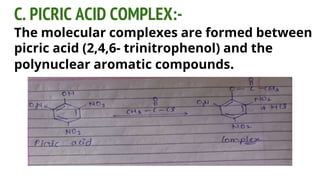 C. PICRIC ACID COMPLEX:-
The molecular complexes are formed between
picric acid (2,4,6- trinitrophenol) and the
polynuclear aromatic compounds.
O
OH
O
O – C – CH3
O2N
NO2
CH3 – C – Cl
O2N
NO2
+ HCl
NO2
NO2
Picric acid
Complex